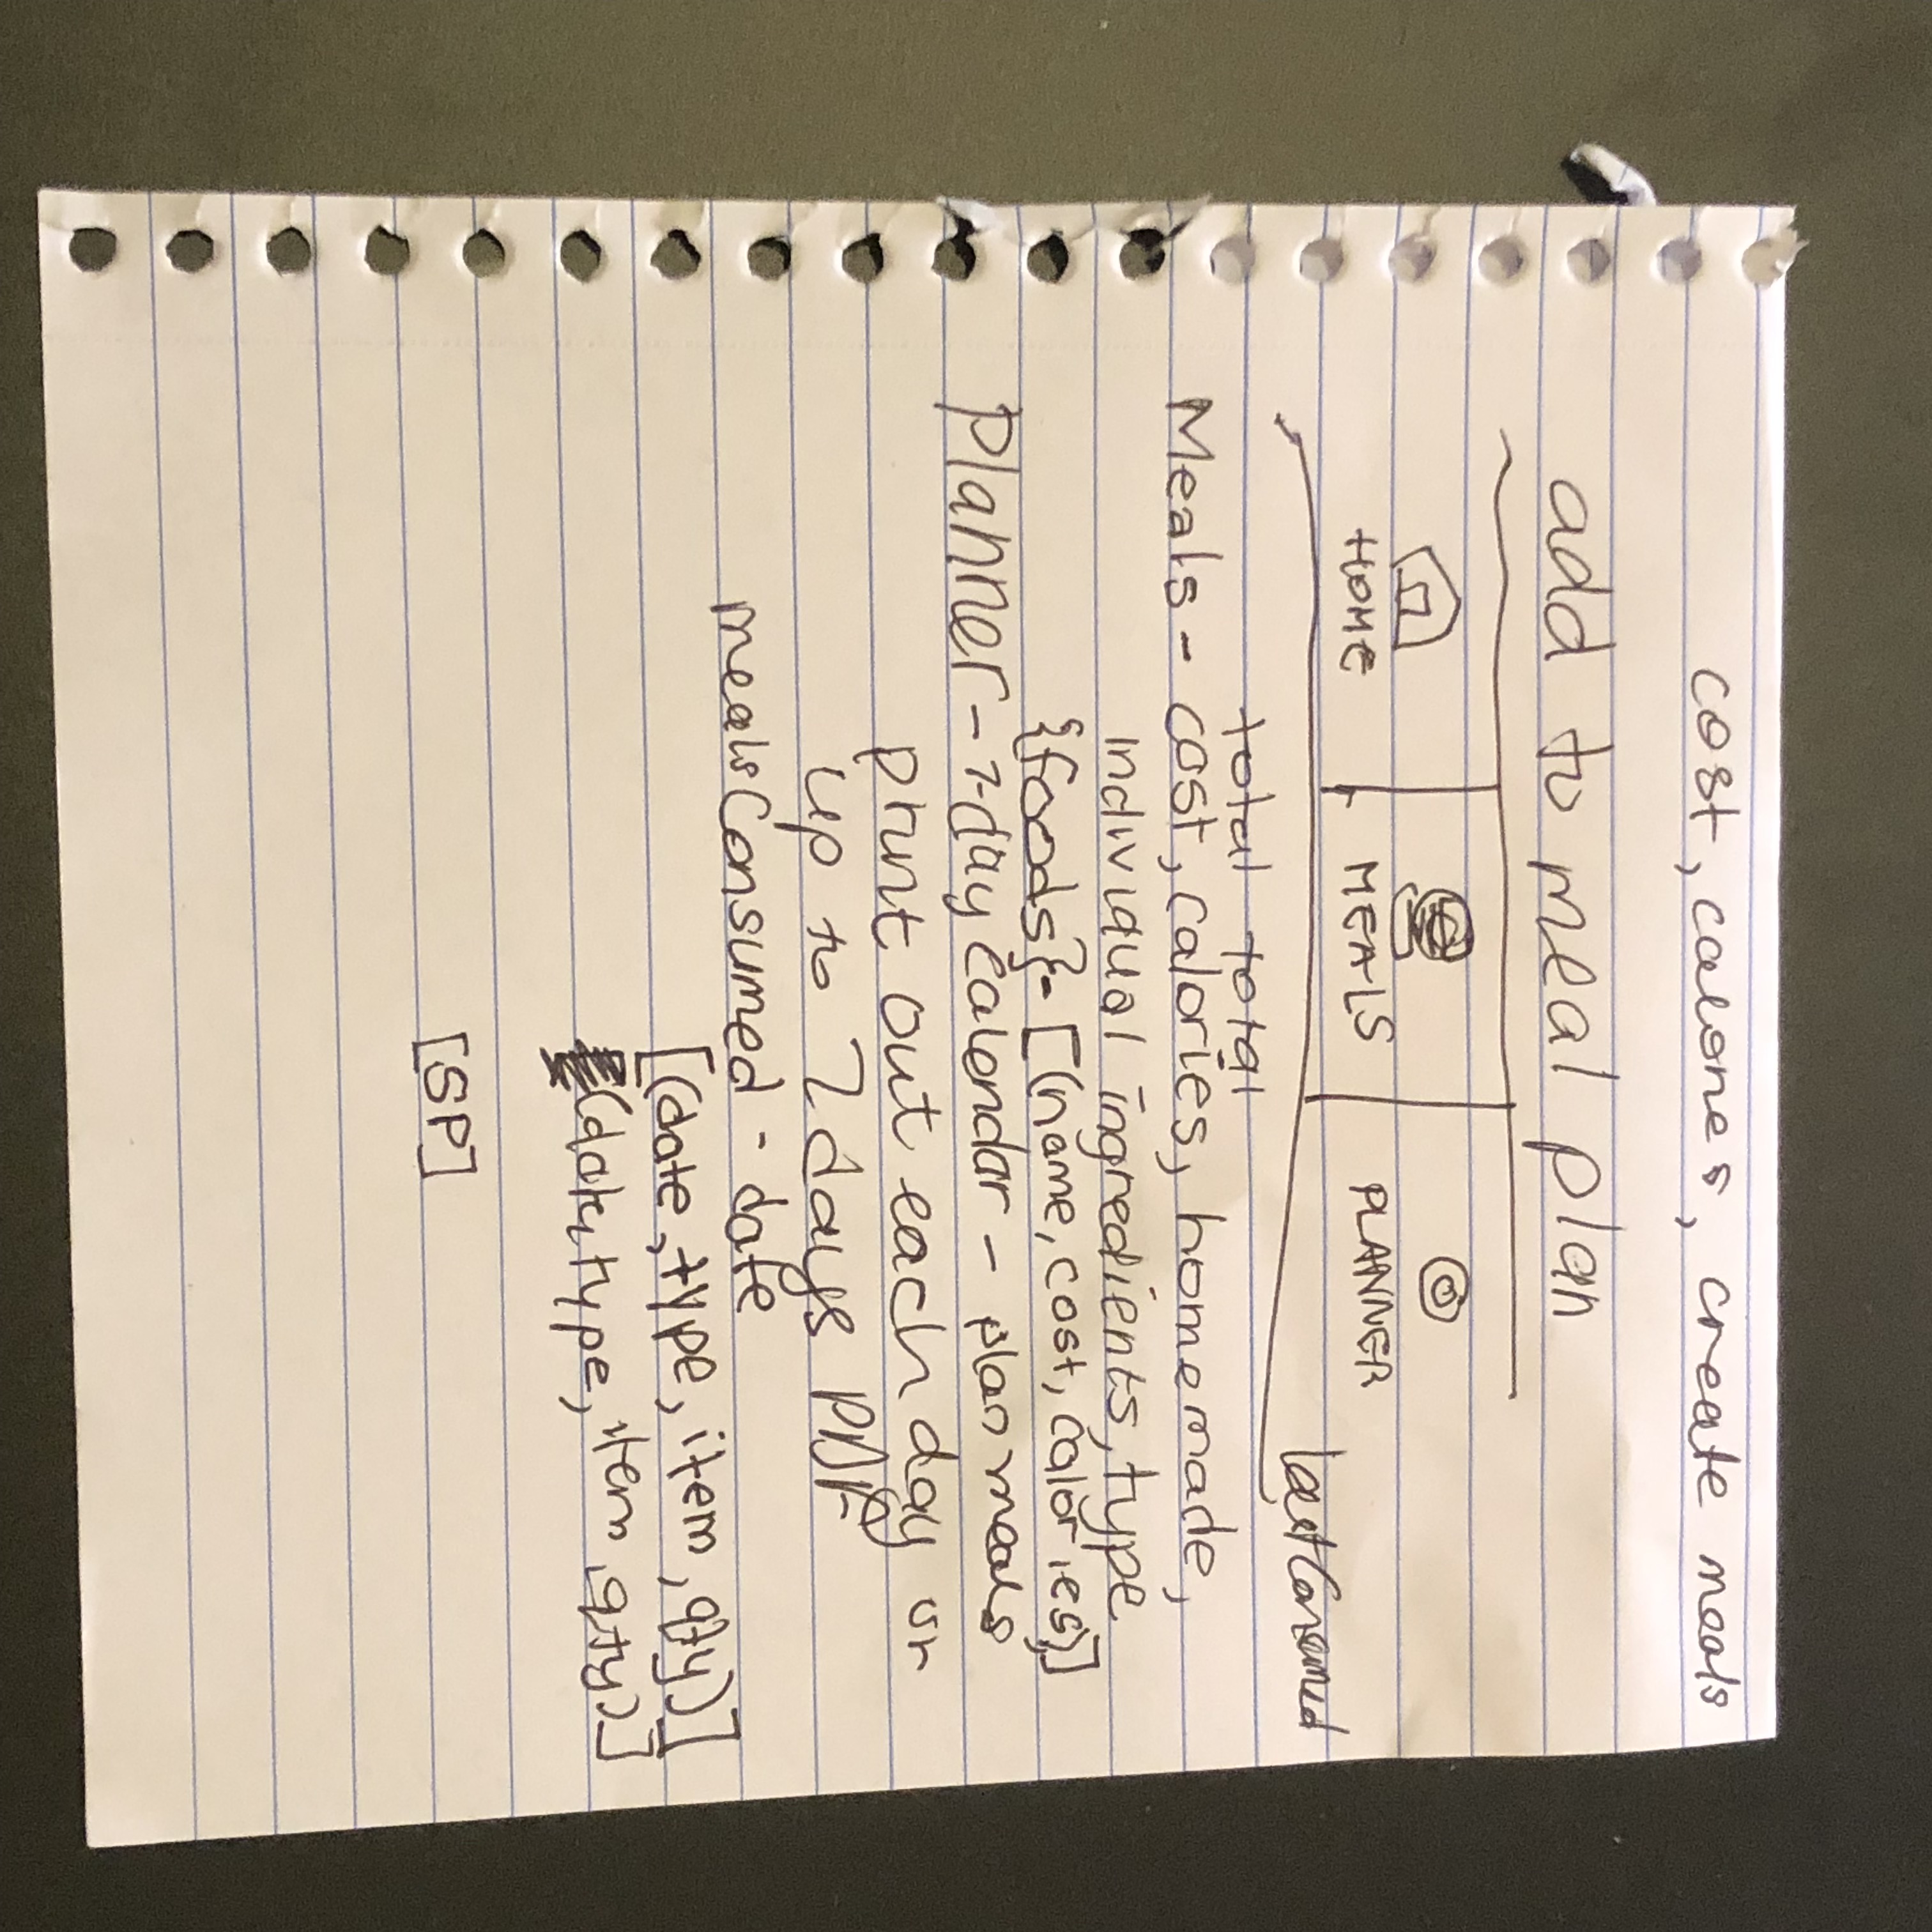 cost, calories, create meals
add to meal plan
HOME MEALS PLANNER
lastConsumed
total total
Meals - cost, calories, homemade,
individual ingredients, type
{foods} - [(name, cost, calories)]
Planner - 7-day calendar - plan meals
print out each day or
up to 7 days PDF
mealsConsumed - date
[(date, type, item, qty)]
(date, type, item, qty)]
[SP]